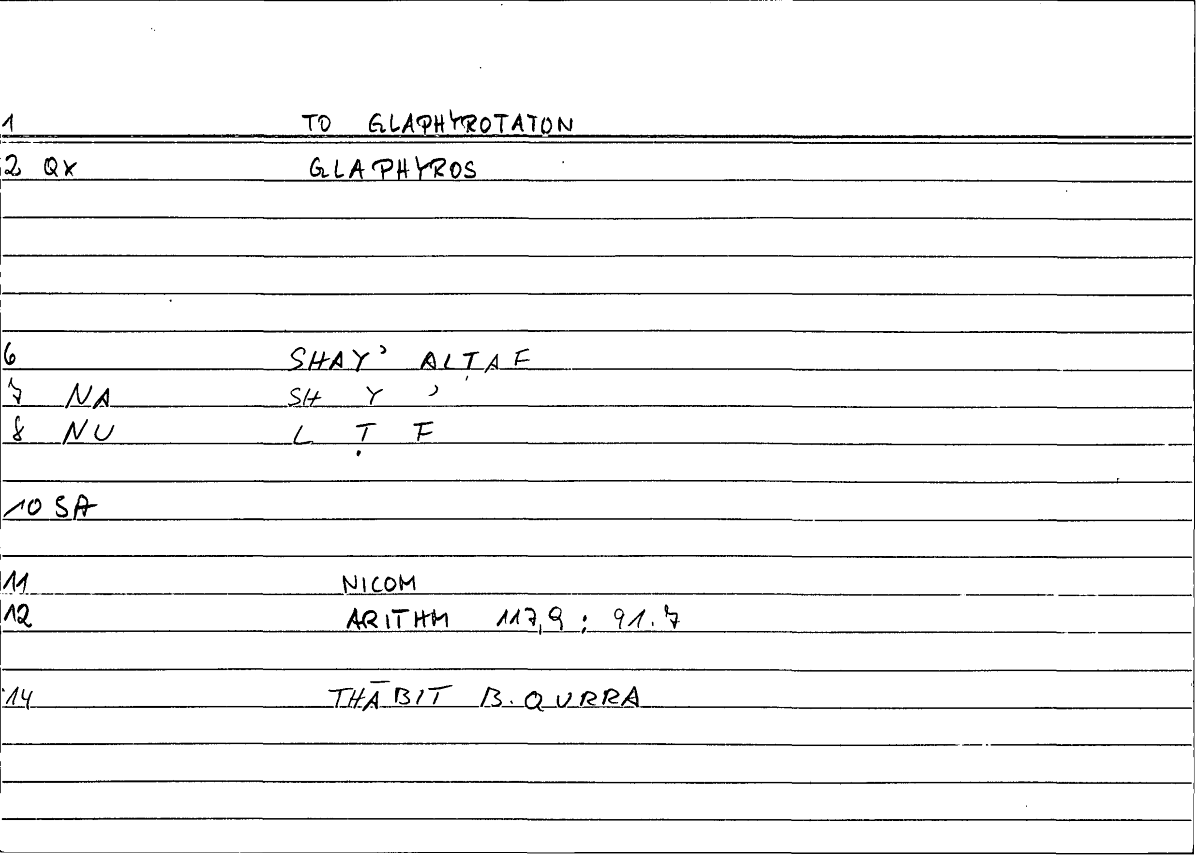 1 TO GLAPHYROTATON
2 QX GLAPHYROS
6 SHAY' ALṬAF
7 NA SH Y '
8 NU L Ṭ F
10 SA
11 NICOM
12 ARITHM 117,9 ; 91.7
14 THĀBIT B. QURRA